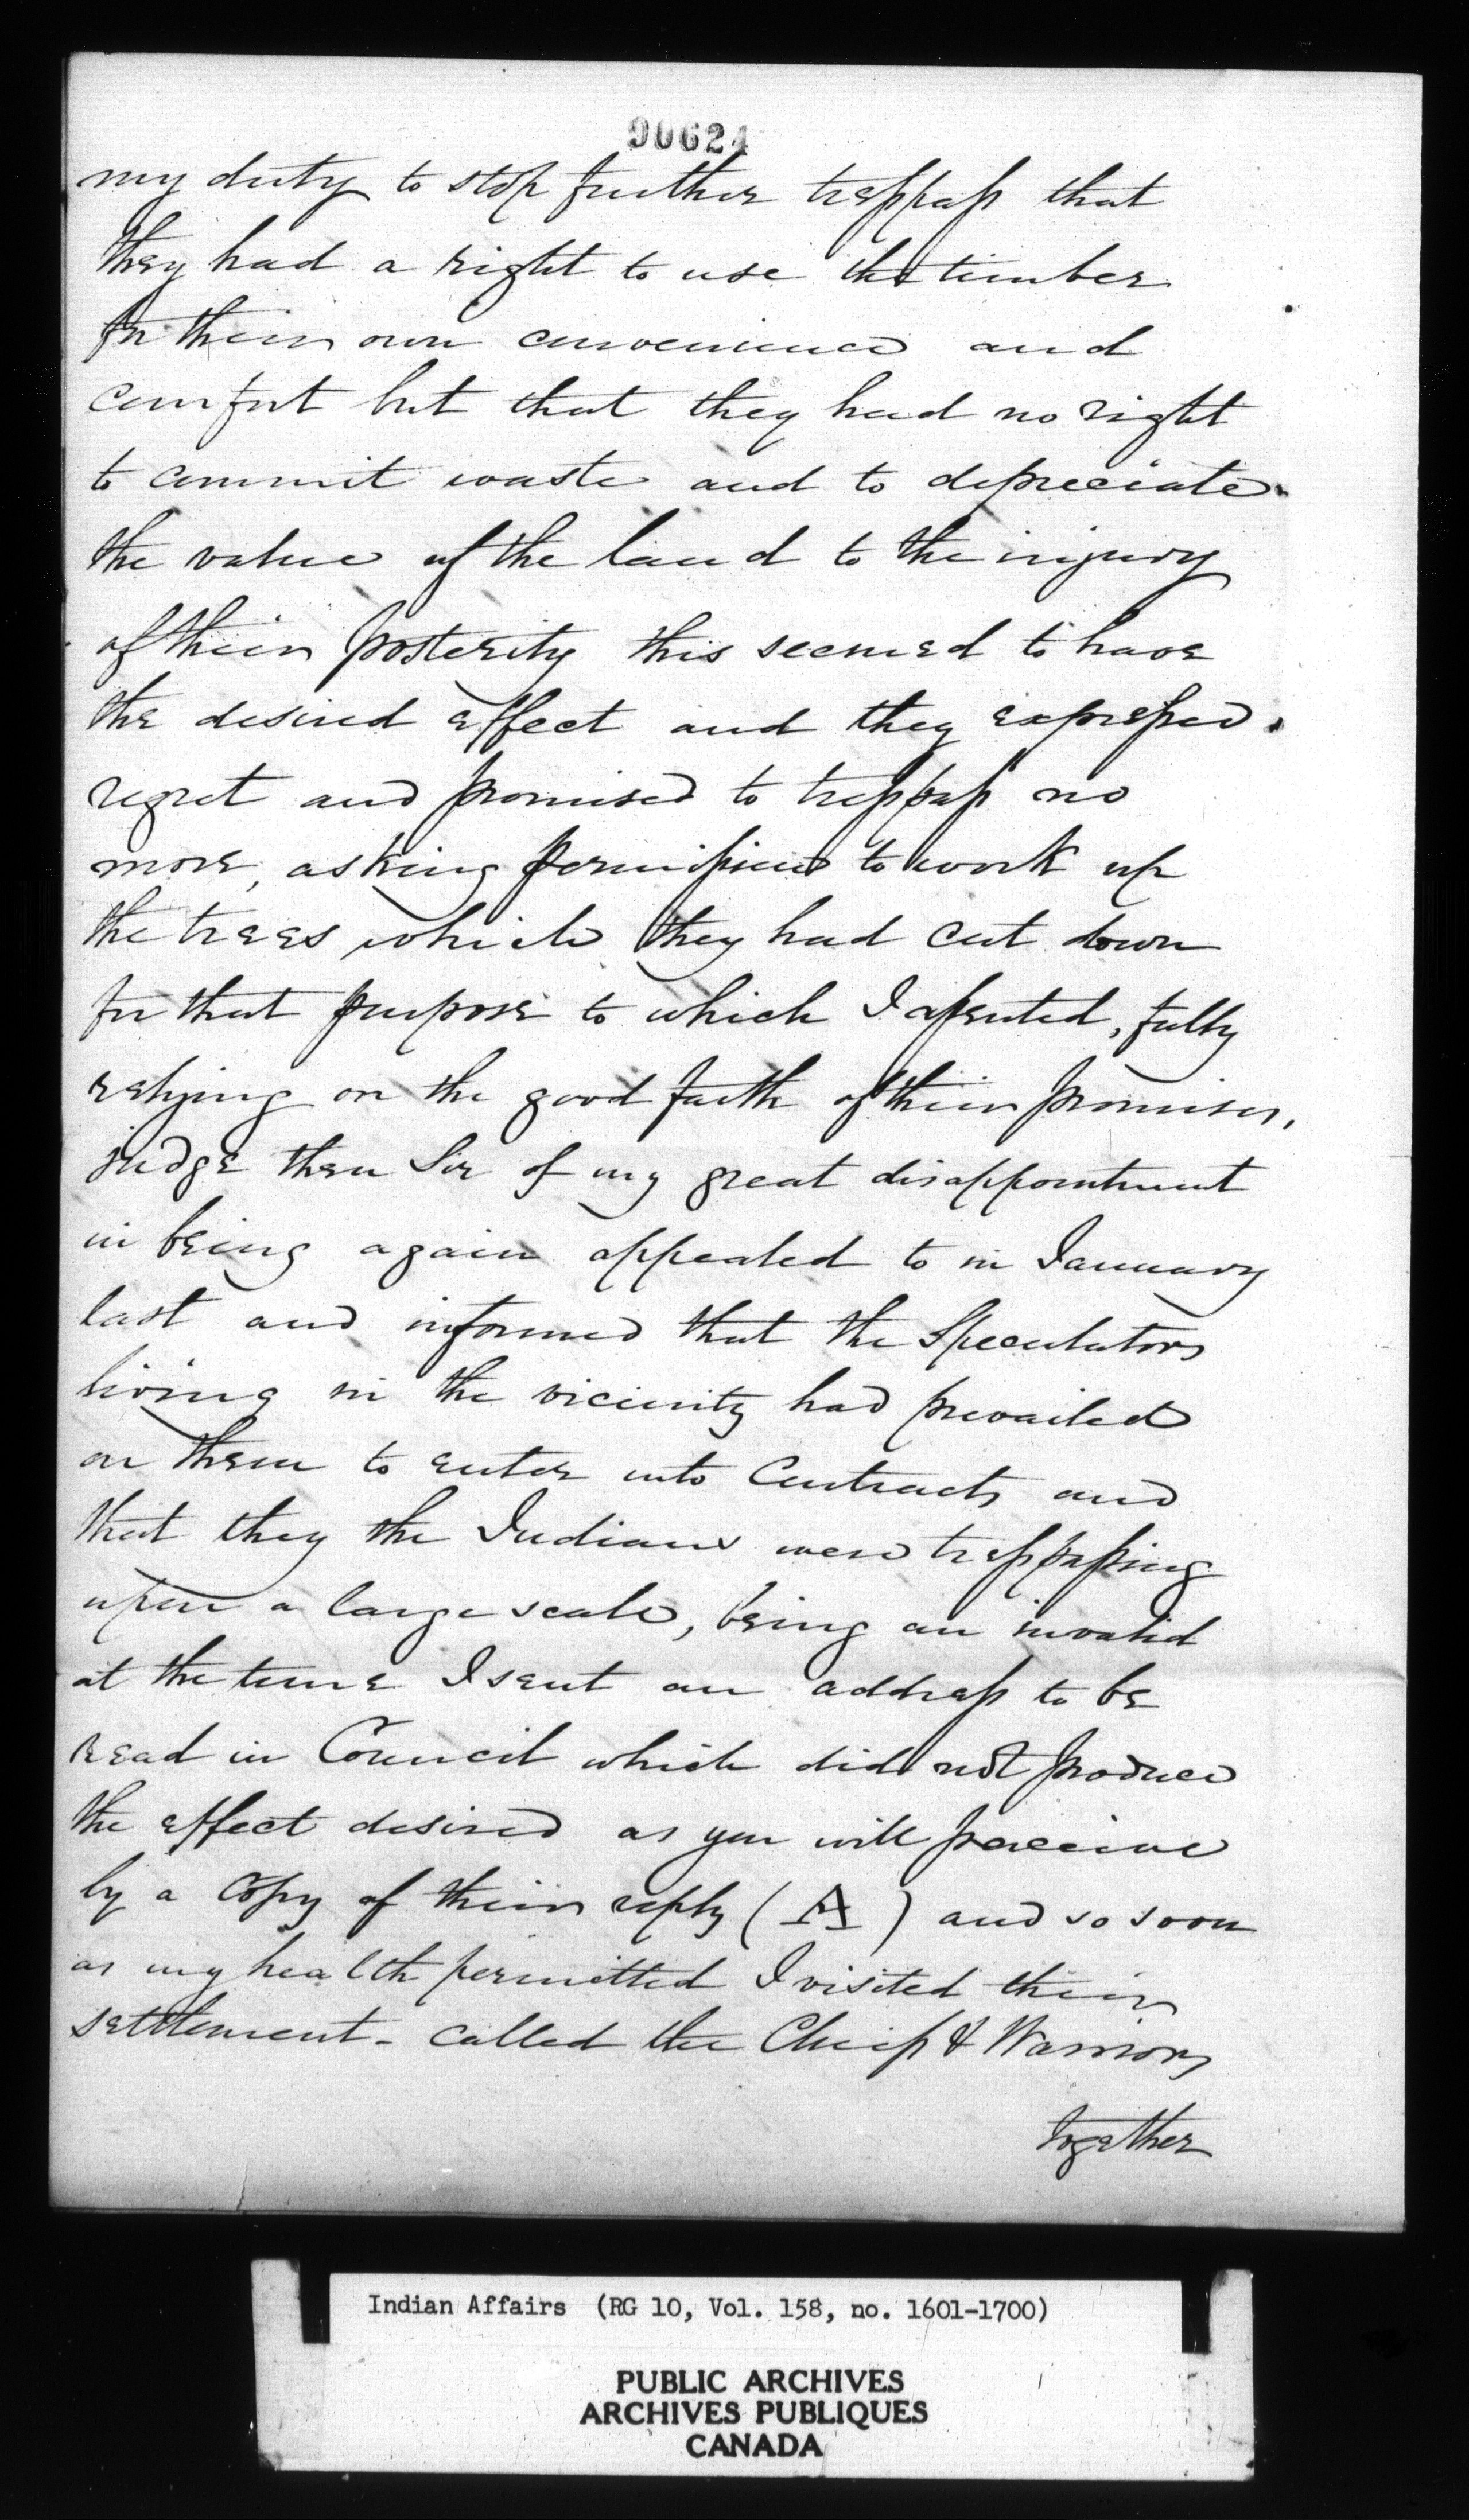 90624
my duty to stop further trespass that
they had a right to use the timber
for their own convenience and
comfort but that they had no right
to commit waste and to depreciate
the value of the land to the injury
of their posterity this seemed to have
the desired effect and they expressed
regret and promised to trespass no
more, asking permission to work up
the trees which they had cut down
for that purpose to which I assented, fully
relying on the good faith of their promises,
judge then Sir of my great disappointment
in being again appealed to in January
last and informed that the Speculators
living in the vicinity had prevailed
on them to enter into Contracts and
that they the Indians were trespassing
upon a large scale, being an invalid
at the time I sent an address to be
read in Council which did not produce
the effect desired as you will perceive
by a Copy of their reply (A) and so soon
as my health permitted I visited their
settlement - called the Chiefs & Warriors
together
Indian Affairs (RG 10, Vol. 158, no. 1601-1700)
PUBLIC ARCHIVES
ARCHIVES PUBLIQUES
CANADA